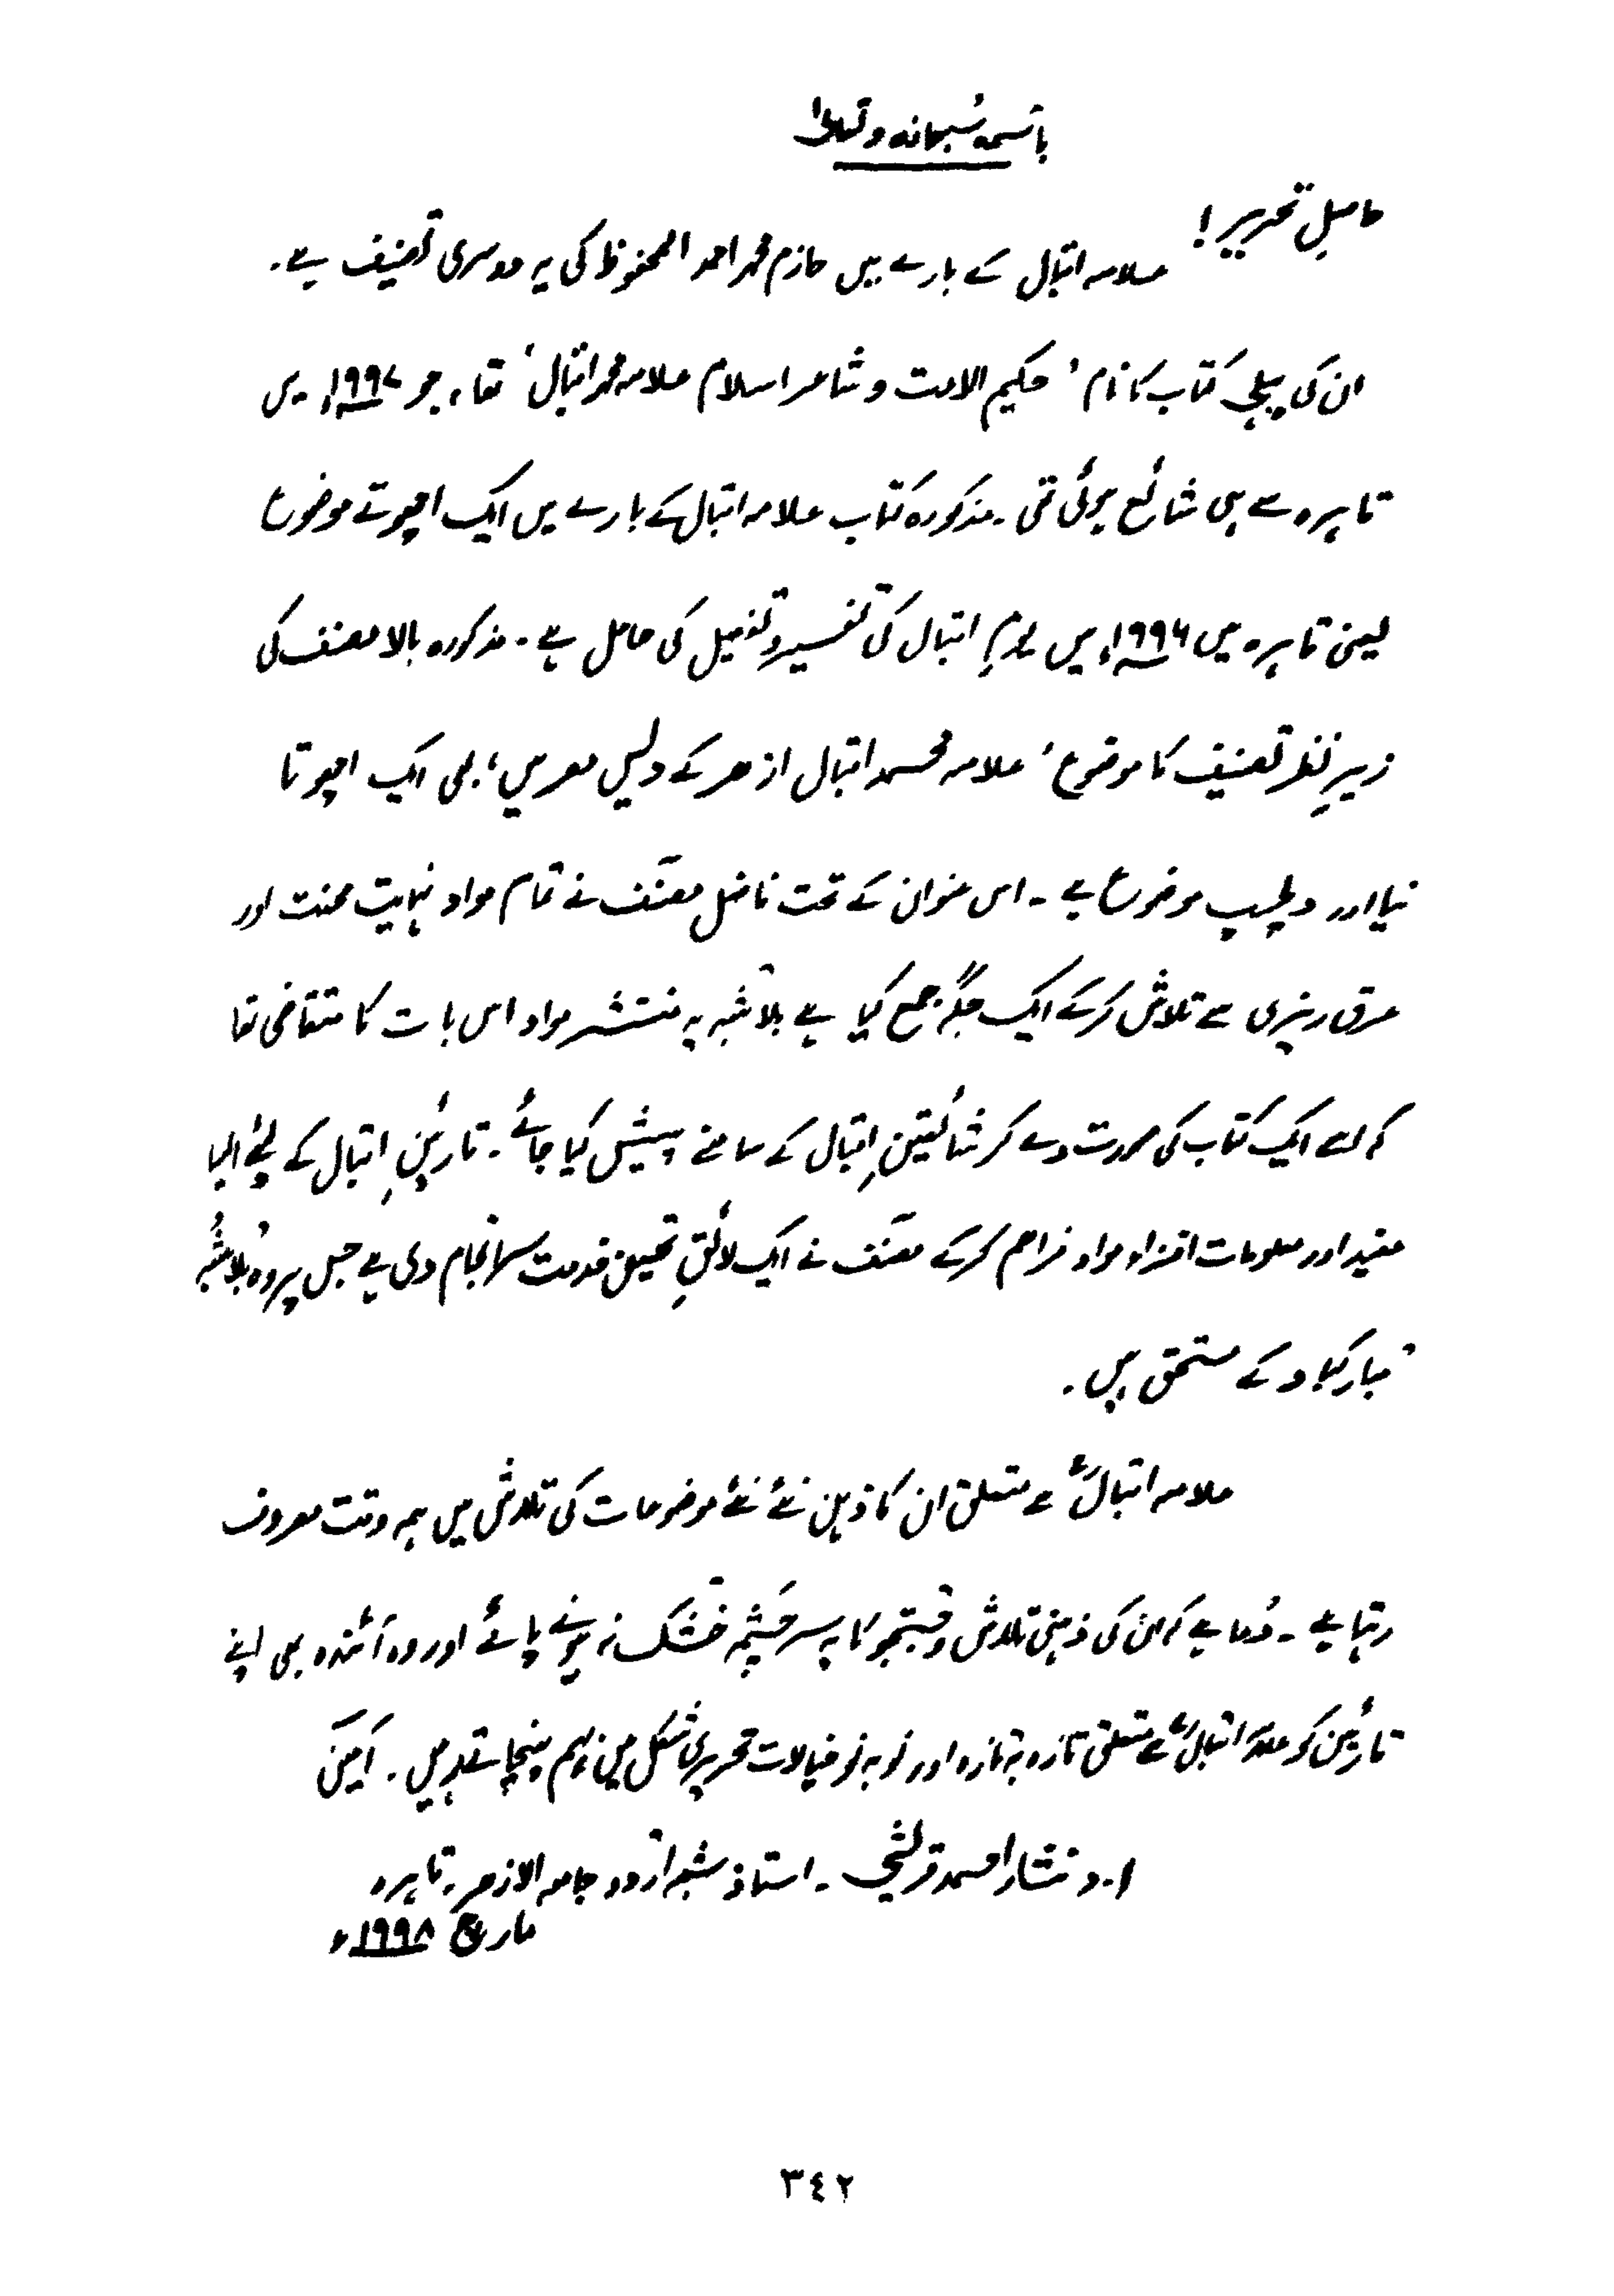 باسمہ سُبحانہ وتعالیٰ
حاصلِ تحریر!
علامہ اقبال کے بارے میں حازم محمد احمد المحفوظ کی یہ دوسری تصنیف ہے۔
ان کی پہلی کتاب کا نام 'حکیم الامت و شاعر اسلام علامہ محمد اقبال' تھا، جو ۱۹۹۷ء میں
قاہرہ سے ہی شائع ہوئی تھی۔ مذکورہ کتاب علامہ اقبال کے بارے میں ایک اچھوتے موضوع
یعنی قاہرہ میں ۱۹۹۶ء میں یومِ اقبال کی تفسیر و تفصیل کی حامل ہے۔ مذکورہ بالا مصنف کی
زیرِ نظر تصنیف کا موضوع 'علامہ محمد اقبال ازھر کے دیس مصر میں' بھی ایک اچھوتا
نیا اور دلچسپ موضوع ہے۔ اس عنوان کے تحت فاضل مصنّف نے تمام مواد نہایت محنت اور
عرق ریزی سے تلاش کرکے ایک جگہ جمع کیا ہے بلا شبہ یہ منتشر مواد اس بات کا متقاضی تھا
کہ اسے ایک کتاب کی صورت دے کر شائقینِ اقبال کے سامنے پیش کیا جائے۔ قارئینِ اقبال کے لئے ایسا
مفید اور معلومات افزاء مواد فراہم کرکے مصنّف نے ایک لائقِ تحسین خدمت سرانجام دی ہے جس پر وہ بلاشبہ
مبارکباد کے مستحق ہیں۔
علامہ اقبالؒ سے متعلق ان کا ذہن نئے نئے موضوعات کی تلاش میں ہمہ وقت مصروف
رہتا ہے۔ دُعا ہے کہ ان کی ذہنی تلاش و جستجو کا یہ سرچشمہ خشک نہ ہونے پائے اور وہ آئندہ بھی اپنے
قارئین کو علامہ اقبالؒ سے متعلق تازہ بہ تازہ اور نو بہ نو خیالات تحریری شکل میں بہم پہنچاتے رہیں۔ آمین
ا۔د نثار احمد قریشی۔ استاذ شعبہ اُردو جامعہ الازھر۔ قاہرہ
مارچ ۱۹۹۸ء
٣٤٢